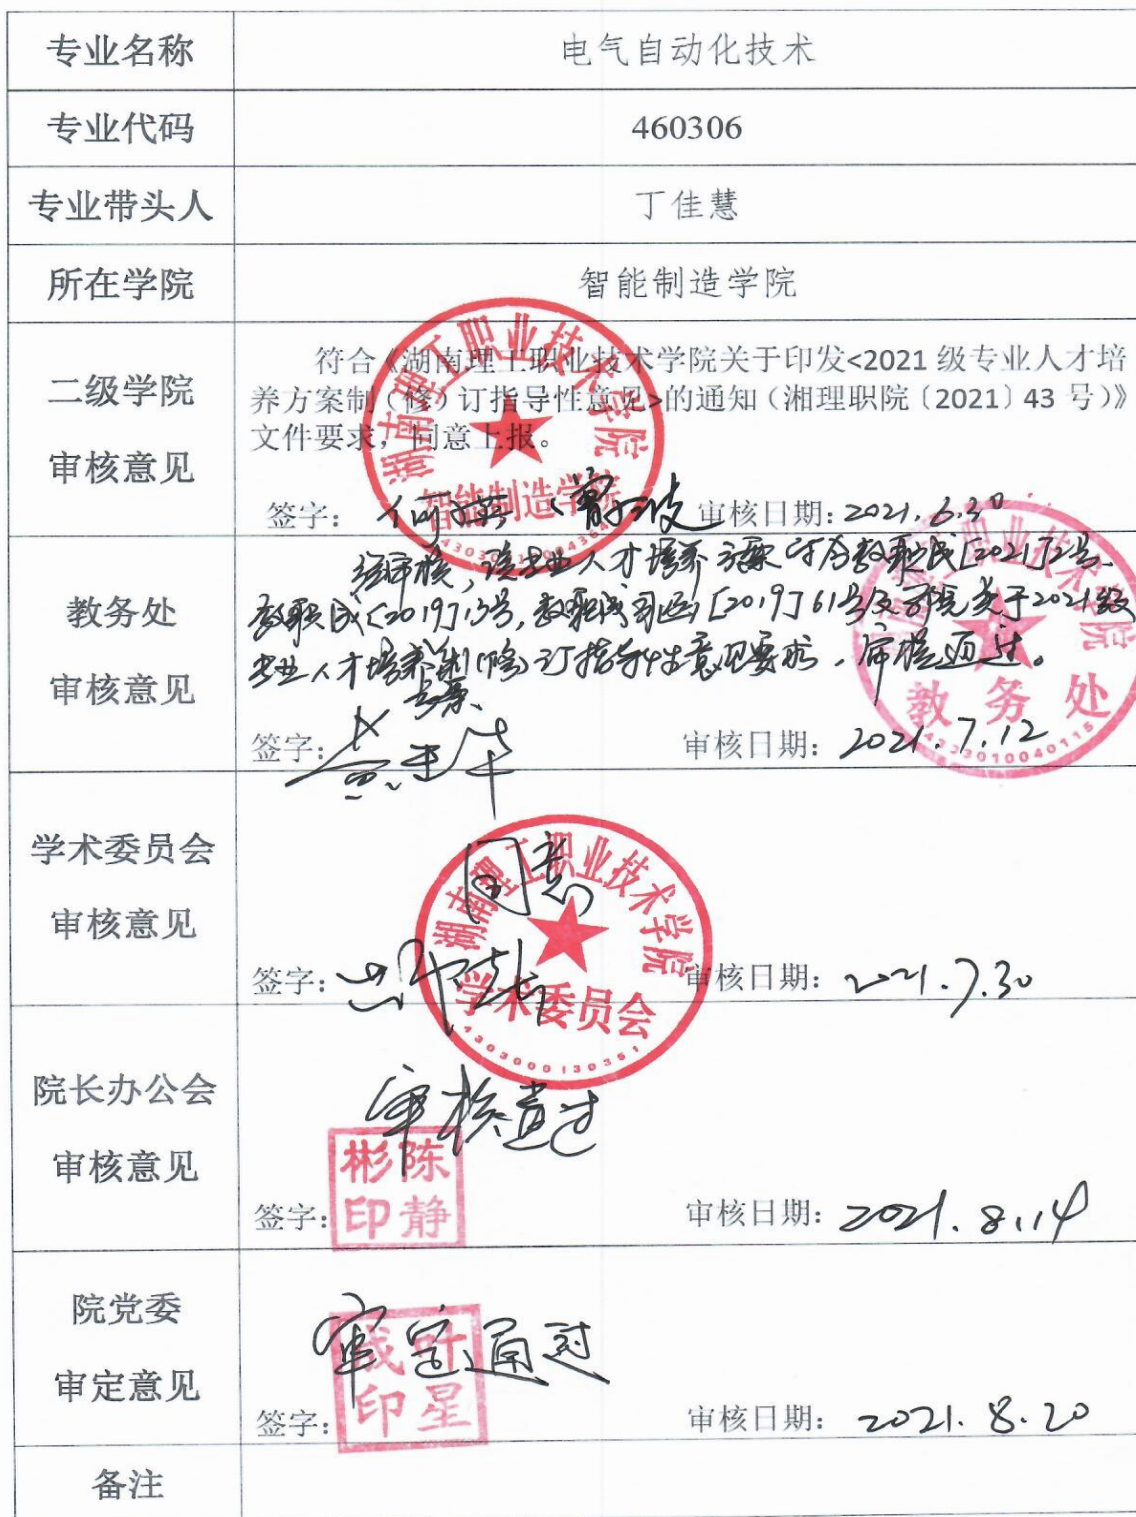 专业名称 电气自动化技术
专业代码 460306
专业带头人 丁佳慧
所在学院 智能制造学院
二级学院
审核意见
符合《湖南理工职业技术学院关于印发<2021 级专业人才培
养方案制（修）订指导性意见>的通知（湘理职院〔2021〕43 号）》
文件要求，同意上报。
签字： 审核日期：2021.6.30
湖南理工职业技术学院
智能制造学院
教务处
审核意见
经审核，该专业人才培养方案符合教职成[2021]2号、
教职成[2019]13号，教职成司函[2019]61号及学院关于2021级
专业人才培养方案制(修)订指导性意见要求，审核通过。
签字： 审核日期：2021.7.12
教务处
学术委员会
审核意见
同意
签字： 审核日期：2021.7.30
湖南理工职业技术学院
学术委员会
4303000130351
院长办公会
审核意见
审核通过
签字： 审核日期：2021.8.14
陈静彬印
院党委
审定意见
审定通过
签字： 审核日期：2021.8.20
叶星成印
备注